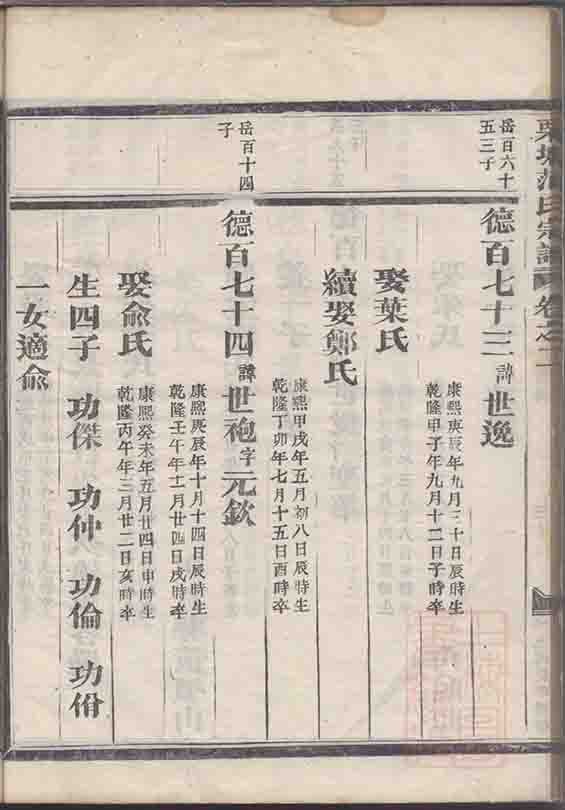 宗譜 卷之二
岳百六十
五三子
德百七十三 諱 世逸
康熙庚辰年九月三十日辰時生
乾隆甲子年九月十二日子時卒
娶葉氏
續娶鄭氏
康熙甲戌年五月初八日辰時生
乾隆丁卯年七月十五日酉時卒
岳百十四
子
德百七十四 諱 世袍 字 元欽
康熙庚辰年十月十四日辰時生
乾隆壬午年十一月廿四日戌時卒
娶俞氏
康熙癸未年五月廿四日申時生
乾隆丙午年三月廿二日亥時卒
生四子 功傑 功仲 功倫 功佾
一女適俞